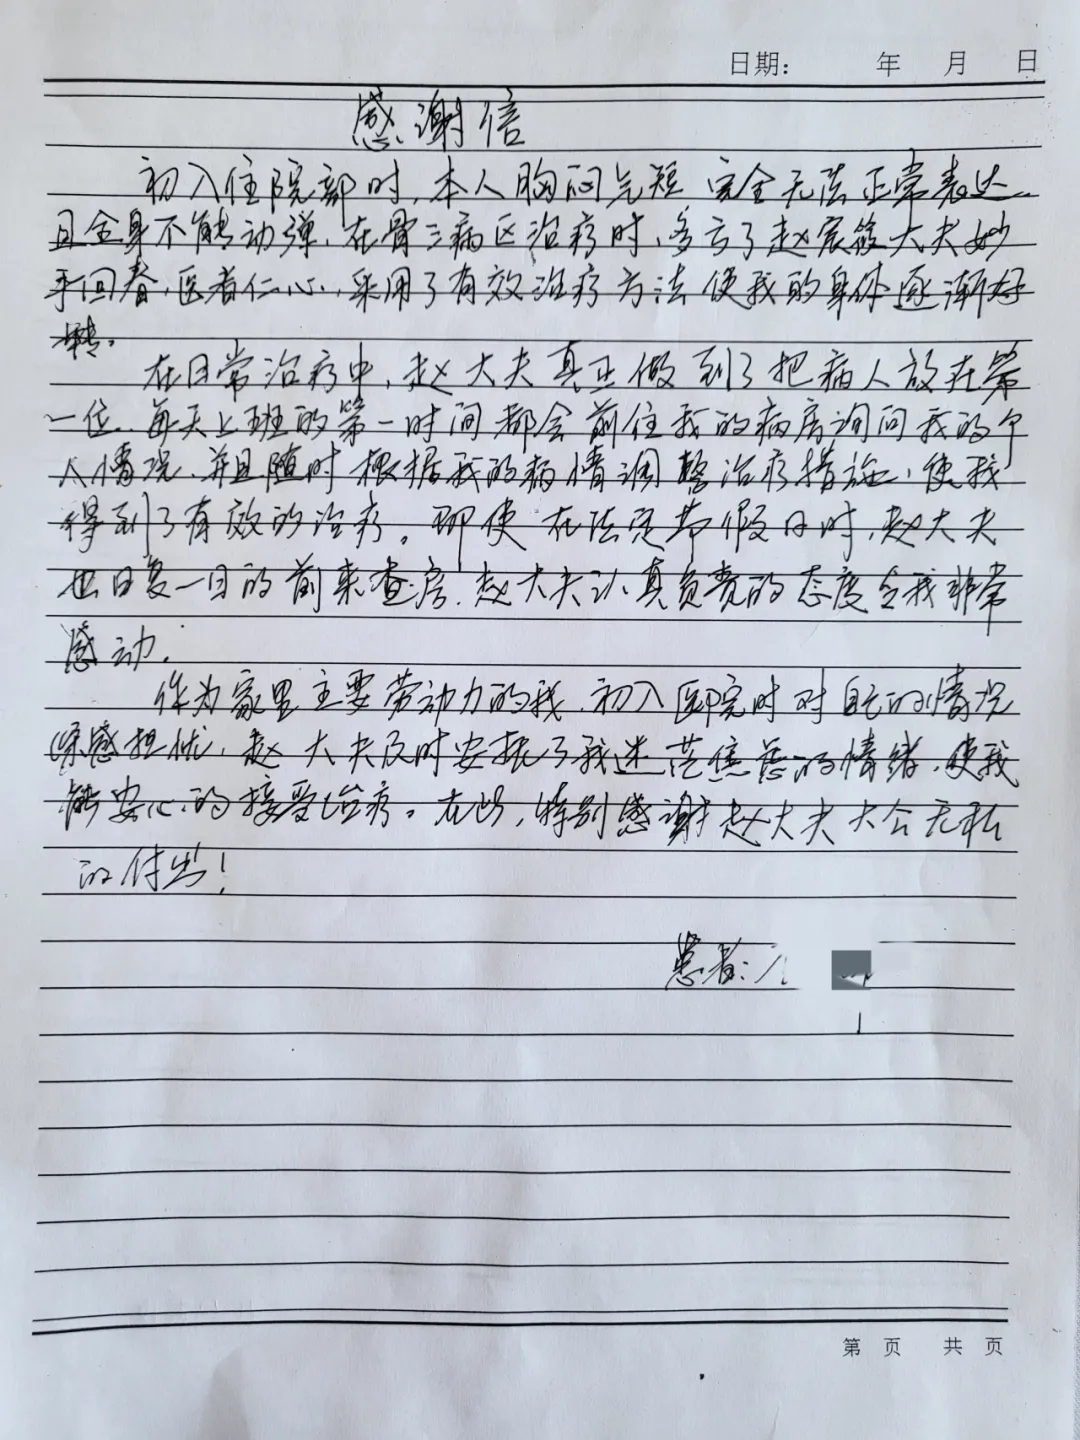 日期： 年 月 日
感谢信
初入住院部时，本人胸闷气短 完全无法正常表达
且全身不能动弹，在骨三病区治疗时，多亏了赵宸俊大夫妙
手回春，医者仁心，采用了有效治疗方法 使我的身体逐渐好
转。
在日常治疗中，赵大夫真正做到了把病人放在第
一位，每天上班的第一时间都会前往我的病房询问我的个
人情况，并且随时根据我的病情调整治疗措施，使我
得到了有效的治疗。即使在法定节假日时，赵大夫
也日复一日的前来查房，赵大夫认真负责的态度令我非常
感动。
作为家里主要劳动力的我，初入医院时对自己的情况
深感担忧，赵大夫及时安抚了我迷茫焦虑的情绪，使我
能安心的接受治疗。在此，特别感谢赵大夫大公无私
的付出！
患者：
第 页 共 页